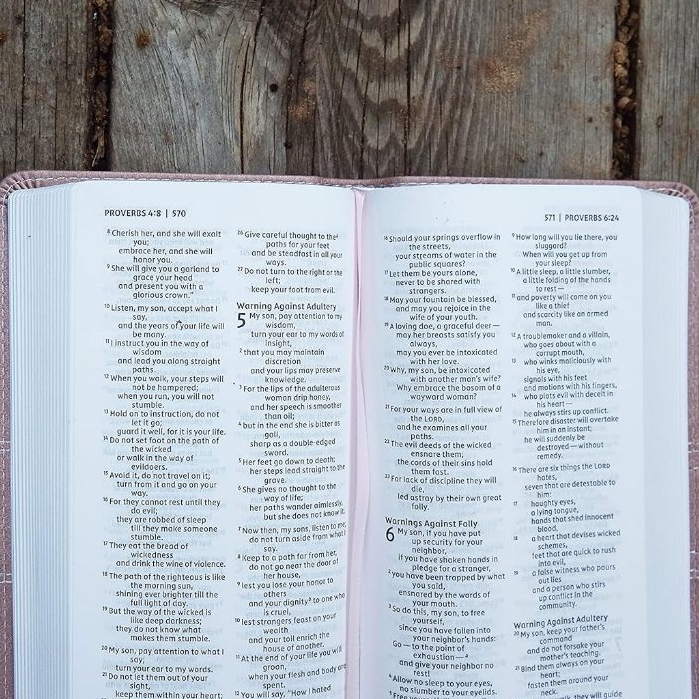 PROVERBS 4:8 | 570
8 Cherish her, and she will exalt
you;
embrace her, and she will
honor you.
9 She will give you a garland to
grace your head
and present you with a
glorious crown."
10 Listen, my son, accept what I
say,
and the years of your life will
be many.
11 I instruct you in the way of
wisdom
and lead you along straight
paths.
12 When you walk, your steps will
not be hampered;
when you run, you will not
stumble.
13 Hold on to instruction, do not
let it go;
guard it well, for it is your life.
14 Do not set foot on the path of
the wicked
or walk in the way of
evildoers.
15 Avoid it, do not travel on it;
turn from it and go on your
way.
16 For they cannot rest until they
do evil;
they are robbed of sleep
till they make someone
stumble.
17 They eat the bread of
wickedness
and drink the wine of violence.
18 The path of the righteous is like
the morning sun,
shining ever brighter till the
full light of day.
19 But the way of the wicked is
like deep darkness;
they do not know what
makes them stumble.
20 My son, pay attention to what I
say;
turn your ear to my words.
21 Do not let them out of your
sight,
keep them within your heart;
26 Give careful thought to the
paths for your feet
and be steadfast in all your
ways.
27 Do not turn to the right or the
left;
keep your foot from evil.
Warning Against Adultery
5 My son, pay attention to my
wisdom,
turn your ear to my words of
insight,
2 that you may maintain
discretion
and your lips may preserve
knowledge.
3 For the lips of the adulterous
woman drip honey,
and her speech is smoother
than oil;
4 but in the end she is bitter as
gall,
sharp as a double-edged
sword.
5 Her feet go down to death;
her steps lead straight to the
grave.
6 She gives no thought to the
way of life;
her paths wander aimlessly,
but she does not know it.
7 Now then, my sons, listen to me;
do not turn aside from what I
say.
8 Keep to a path far from her,
do not go near the door of
her house,
9 lest you lose your honor to
others
and your dignity b to one who
is cruel,
10 lest strangers feast on your
wealth
and your toil enrich the
house of another.
11 At the end of your life you will
groan,
when your flesh and body are
spent.
12 You will say, "How I hated
571 | PROVERBS 6:24
16 Should your springs overflow in
the streets,
your streams of water in the
public squares?
17 Let them be yours alone,
never to be shared with
strangers.
18 May your fountain be blessed,
and may you rejoice in the
wife of your youth.
19 A loving doe, a graceful deer—
may her breasts satisfy you
always,
may you ever be intoxicated
with her love.
20 Why, my son, be intoxicated
with another man's wife?
Why embrace the bosom of a
wayward woman?
21 For your ways are in full view of
the LORD,
and he examines all your
paths.
22 The evil deeds of the wicked
ensnare them;
the cords of their sins hold
them fast.
23 For lack of discipline they will
die,
led astray by their own great
folly.
Warnings Against Folly
6 My son, if you have put
up security for your
neighbor,
if you have shaken hands in
pledge for a stranger,
2 you have been trapped by what
you said,
ensnared by the words of
your mouth.
3 So do this, my son, to free
yourself,
since you have fallen into
your neighbor's hands:
Go — to the point of
exhaustion — a
and give your neighbor no
rest!
4 Allow no sleep to your eyes,
no slumber to your eyelids.
9 How long will you lie there, you
sluggard?
When will you get up from
your sleep?
10 A little sleep, a little slumber,
a little folding of the hands
to rest —
11 and poverty will come on you
like a thief
and scarcity like an armed
man.
12 A troublemaker and a villain,
who goes about with a
corrupt mouth,
13 who winks maliciously with
his eye,
signals with his feet
and motions with his fingers,
14 who plots evil with deceit in
his heart—
he always stirs up conflict.
15 Therefore disaster will overtake
him in an instant;
he will suddenly be
destroyed — without
remedy.
16 There are six things the LORD
hates,
seven that are detestable to
him:
17 haughty eyes,
a lying tongue,
hands that shed innocent
blood,
18 a heart that devises wicked
schemes,
feet that are quick to rush
into evil,
19 a false witness who pours
out lies
and a person who stirs
up conflict in the
community.
Warning Against Adultery
20 My son, keep your father's
command
and do not forsake your
mother's teaching.
21 Bind them always on your
heart;
fasten them around your
neck.